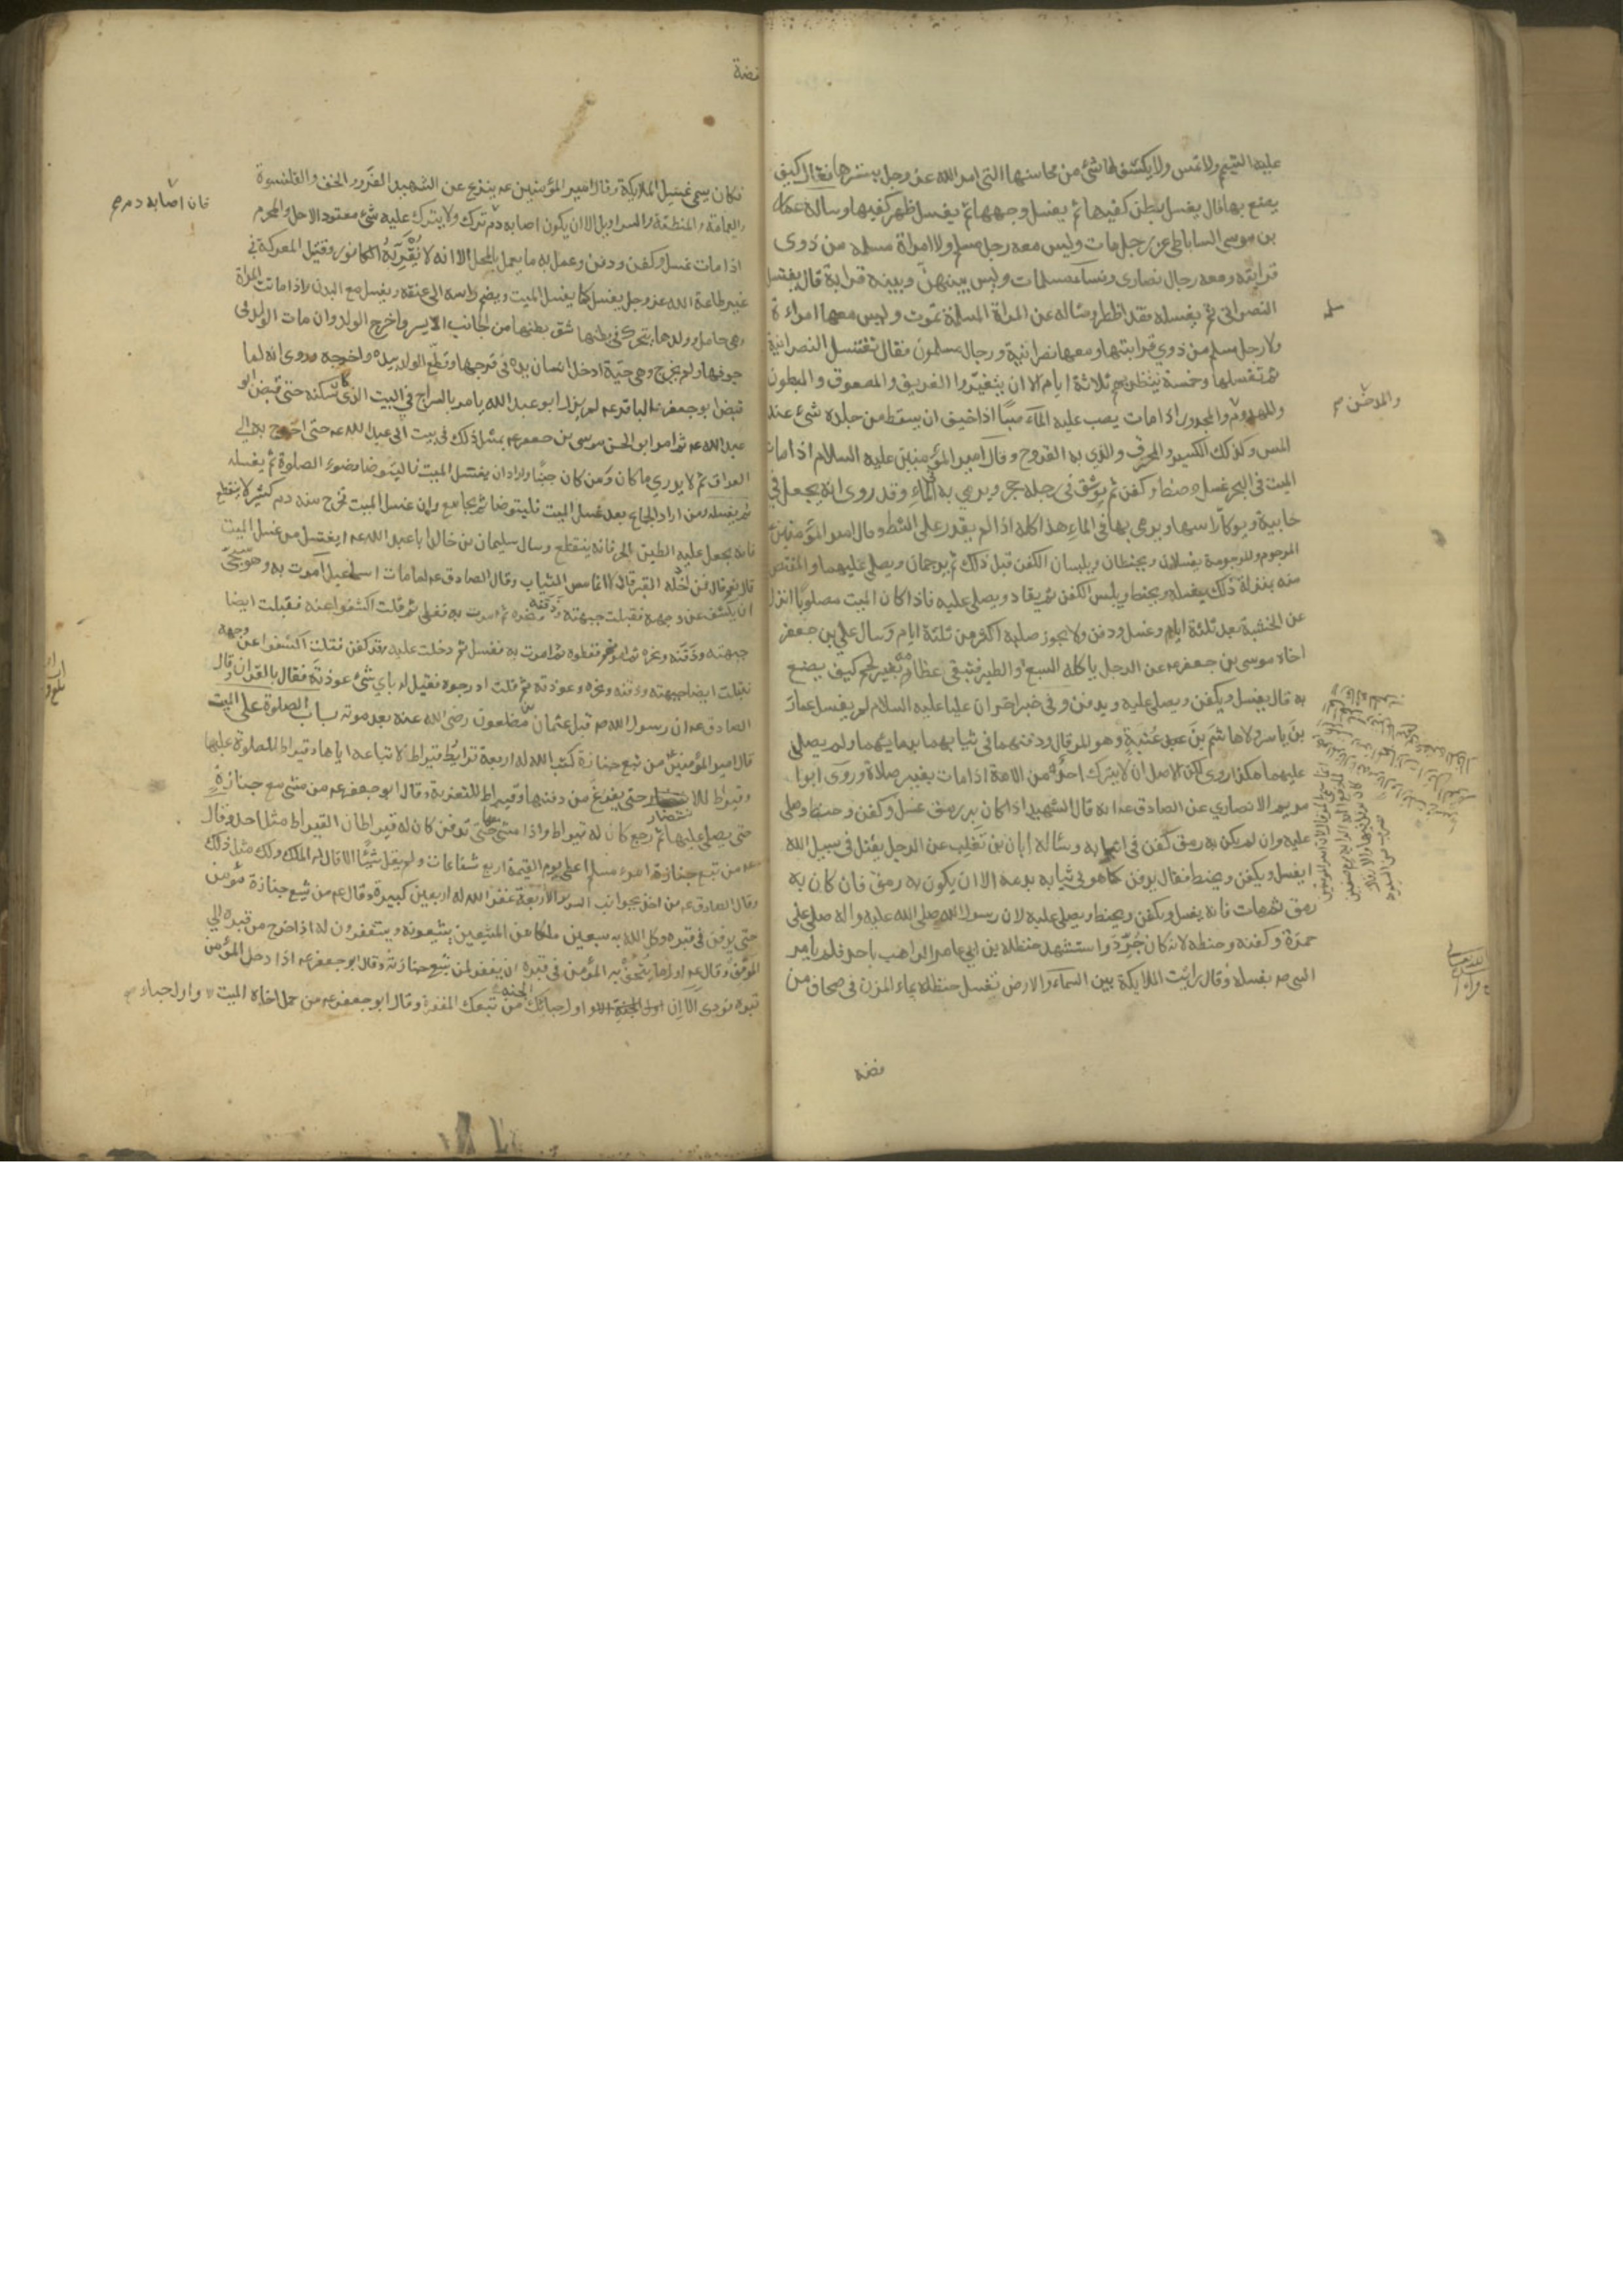 عليه التيمم ولا تمس ولا يكشف لها شئ من محاسنها التي امر الله عز وجل بسترها فقال كيف
يصنع بها قال يغسل بطن كفيها ثم يغسل وجهها ثم يغسل ظهر كفيها وساله عمار
بن موسى الساباطى عن رجل مات وليس معه رجل مسلم ولا امراة مسلمه من ذوى
قرابته ومعه رجال نصارى ونساء مسلمات وليس بينهن وبينه قرابة قال يغتسل
النصرانى ثم يغسله فقد اضطر وساله عن المراة المسلمة تموت وليس معها امراءة
ولا رجل مسلم من ذوي قرابتها ومعها نصرانية ورجال مسلمون فقال تغتسل النصرانية
ثم تغسلها وخمسة ينتظر بهم ثلاثة ايام الا ان يتغيروا الغريق والمصعوق والمبطون
والمهدوم والمجدور اذا مات يصب عليه الماء صبا اذا خيف ان يسقط من جلده شئ عند
المس وكذلك الكسير والمحرق والذي به القروح وقال امير المؤمنين عليه السلام اذا مات
الميت في البحر غسل وحنط وكفن ثم يوثق في رجله حجر ويرمي به في الماء وقد روى انه يجعل في
خابية ويوكأ راسها ويرمى بها في الماء هذا كله اذا لم يقدر على الشط وقال امير المؤمنين
المرجوم والمرجومة يغسلان ويحنطان ويلبسان الكفن قبل ذلك ثم يرجمان ويصلى عليهما والمقتص
منه بمنزلة ذلك يغسل ويحنط ويلبس الكفن ثم يقاد ويصلى عليه فاذا كان الميت مصلوبا انزل
عن الخشبة بعد ثلثة ايام وغسل ودفن ولا يجوز صلبه اكثر من ثلثة ايام وسال علي بن جعفر
اخاه موسى بن جعفر عن الرجل ياكله السبع او الطير فتبقى عظامه بغير لحم كيف يصنع
به قال يغسل ويكفن ويصلى عليه ويدفن وفي خبر اخر ان عليا عليه السلام لم يغسل عمار
بن ياسر ولا هاشم بن عبد عتبة وهو المرقال ودفنهما في ثيابهما بدمايهما ولم يصلي
عليهما هكذا روى لكن الاصل ان لا يترك احد من الامة اذا مات بغير صلاة وروى ابو
مريم الانصاري عن الصادق انه قال الشهيد اذا كان به رمق غسل وكفن وحنط وصلى
عليه وان لم يكن به رمق كفن في اثوابه وساله ابان بن تغلب عن الرجل يقتل في سبيل الله
ايغسل ويكفن ويحنط فقال يدفن كما هو في ثيابه بدمه الا ان يكون به رمق فان كان به
رمق ثم مات فانه يغسل ويكفن ويحنط ويصلى عليه لان رسول الله صلى الله عليه واله صلى على
حمزة وكفنه وحنطه لانه كان جرد واستشهد حنظله بن ابي عامر الراهب باحد فلم يامر
النبي بغسله وقال رايت الملايكة بين السماء والارض تغسل حنظله بماء المزن في صحاف من
فضه
والمدخن
فضة
فكان يسمى غسيل الملايكة وقال امير المؤمنين ينزع عن الشهيد الفرو والخف والقلنسوة
والعمامة والمنطقة والسراويل الا ان يكون اصابه دم ترك ولا يترك عليه شئ معقود الا حل والمحرم
فان اصابه دم
اذا مات غسل وكفن ودفن وعمل به ما يعمل بالمحل الا انه لا يقربه الكافور وقتيل المعركة في
غير طاعة الله عز وجل يغسل كما يغسل الميت ويضم راسه الى عنقه ويغسل مع البدن واذا ماتت المراة
وهي حامل وولدها يتحرك في بطنها شق بطنها من الجانب الايسر واخرج الولد وان مات الولد في
جوفها ولم يخرج وهي حية ادخل انسان يده في فرجها وقطع الولد بيده واخرجه وروى انه لما
قبض ابو جعفر الباقر لم يزل ابو عبد الله يامر بالسراج في البيت الذي كان يسكنه حتى قبض ابو
عبد الله ثم امر ابو الحسن موسى بن جعفر بمثل ذلك في بيت ابي عبد الله حتى اخرج به الى
العراق ثم لا يدري ما كان ومن كان جنبا واراد ان يغتسل الميت فاليتوضا وضوء الصلوة ثم يغسله
ثم يغسله ومن اراد الجماع بعد غسل الميت فليتوضا ثم يجامع وان غسل الميت فخرج منه دم كثير لا ينقطع
فانه يجعل عليه الطين الحر فانه ينقطع وسال سليمان بن خالد ابا عبد الله ايغتسل من غسل الميت
قال نعم قال فمن ادخله القبر قال لا انما مس الثياب وقال الصادق لما مات اسماعيل امرت به وهو مسجى
ان يكشف عن وجهه فقبلت جبهته وذقنه ونحره ثم امرت به فغطى ثم قلت اكشفوا عنه فقبلت ايضا
جبهته وذقنه ونحره ثم امرتهم فغطوه ثم امرت به فغسل ثم دخلت عليه وقد كفن فقلت اكشفوا عن وجهه
فقبلت ايضا جبهته وذقنه ونحره وعوذته ثم قلت ادرجوه فقيل له باي شئ عوذته فقال بالقران وقال
الصادق ان رسول الله قبل عثمان بن مظعون رضى الله عنه بعد موته باب الصلوة على الميت
قال امير المؤمنين من تبع جنازة كتب الله له اربعة قراريط قيراط لاتباعه اياها وقيراط للصلوة عليها
وقيراط للانتظار حتى يفرغ من دفنها وقيراط للتعزية وقال ابو جعفر من مشى مع جنازة
حتى يصلي عليها ثم رجع كان له قيراط واذا مشى معها حتى تدفن كان له قيراطان القيراط مثل احد وقال
من تبع جنازة امرء مسلم اعطى يوم القيمة اربع شفاعات ولم يقل شيئا الا قال له الملك ولك مثل ذلك
وقال الصادق من اخذ بجوانب السرير الاربعة غفر الله له اربعين كبيرة وقال من شيع جنازة مؤمن
حتى يدفن في قبره وكل الله به سبعين ملكا من المشيعين يشيعونه ويستغفرون له اذا خرج من قبره الى
الموقف وقال اول ما يتحف به المؤمن في قبره ان يغفر لمن تبع جنازته وقال ابو جعفر اذا دخل المؤمن
قبره نودى الا ان اول حبائك الجنة الا و اول حباء من تبعك المغفرة وقال ابو جعفر من حمل اخاه الميت